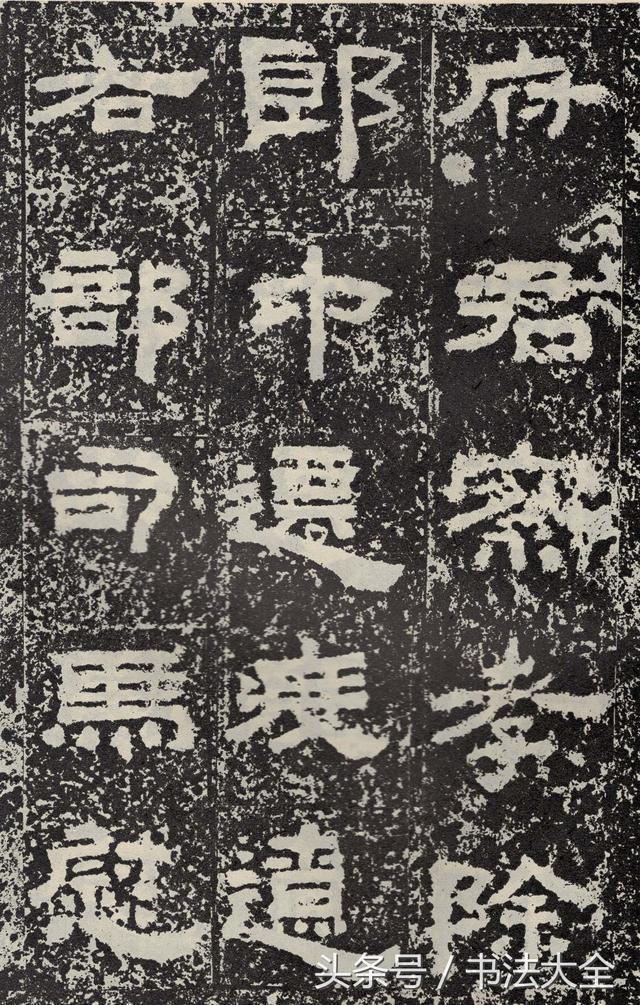 府君察孝除
郎中遷度遼
右部司馬慰
头条号 / 书法大全